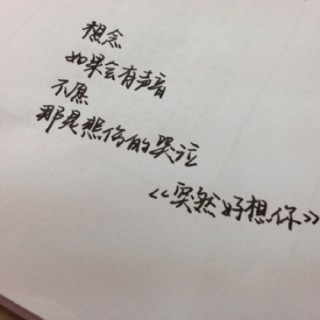 想念
如果会有声音
不愿
那是悲伤的哭泣
《突然好想你》